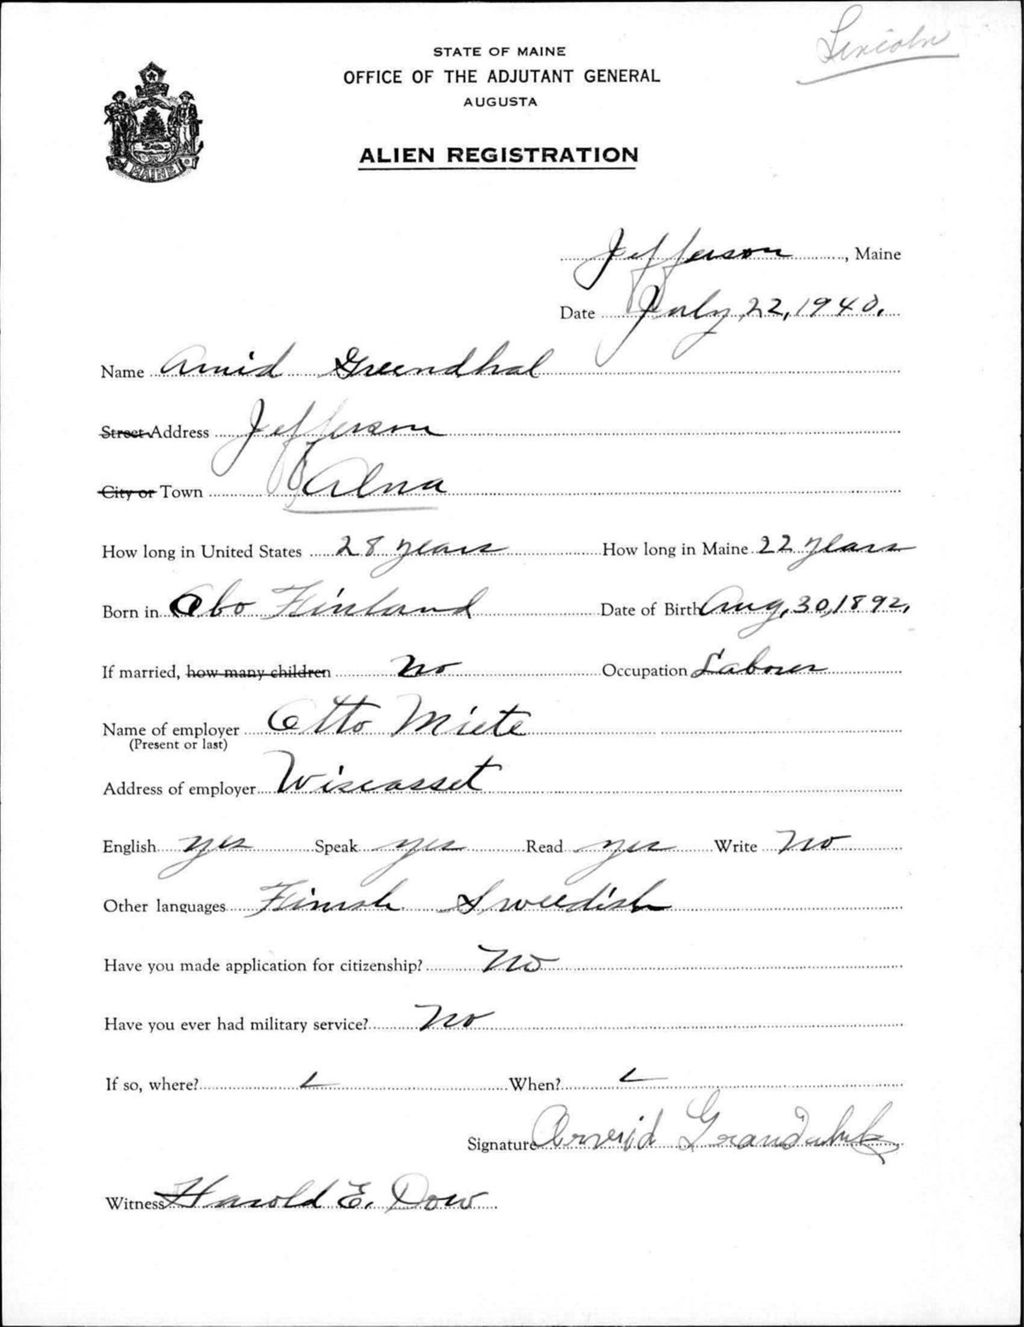 Lincoln
STATE OF MAINE
OFFICE OF THE ADJUTANT GENERAL
AUGUSTA
MAINE
ALIEN REGISTRATION
Jefferson, Maine
Date July 22, 1940.
Name Arvid Greendhal
Street Address Jefferson
City or Town Alna
How long in United States 28 years How long in Maine 22 years
Born in Abo Finland Date of Birth Aug, 30, 1892,
If married, how many children No Occupation Laborer
Name of employer Otto Miete
(Present or last)
Address of employer Wiscasset
English yes Speak yes Read yes Write No
Other languages Finish Sweedish
Have you made application for citizenship? No
Have you ever had military service? No
If so, where? When?
Signature Arvid
Witness Harold E. Dow